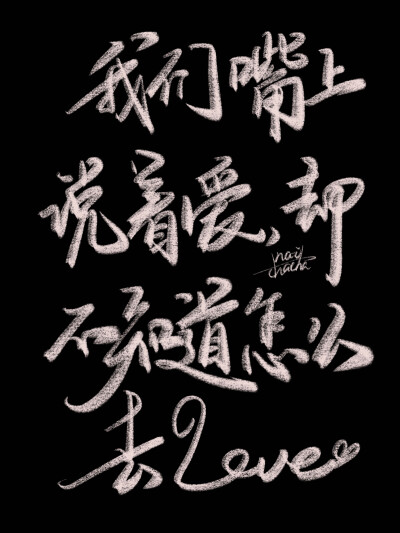 我们嘴上
说着爱,却
不知道怎么
去Love